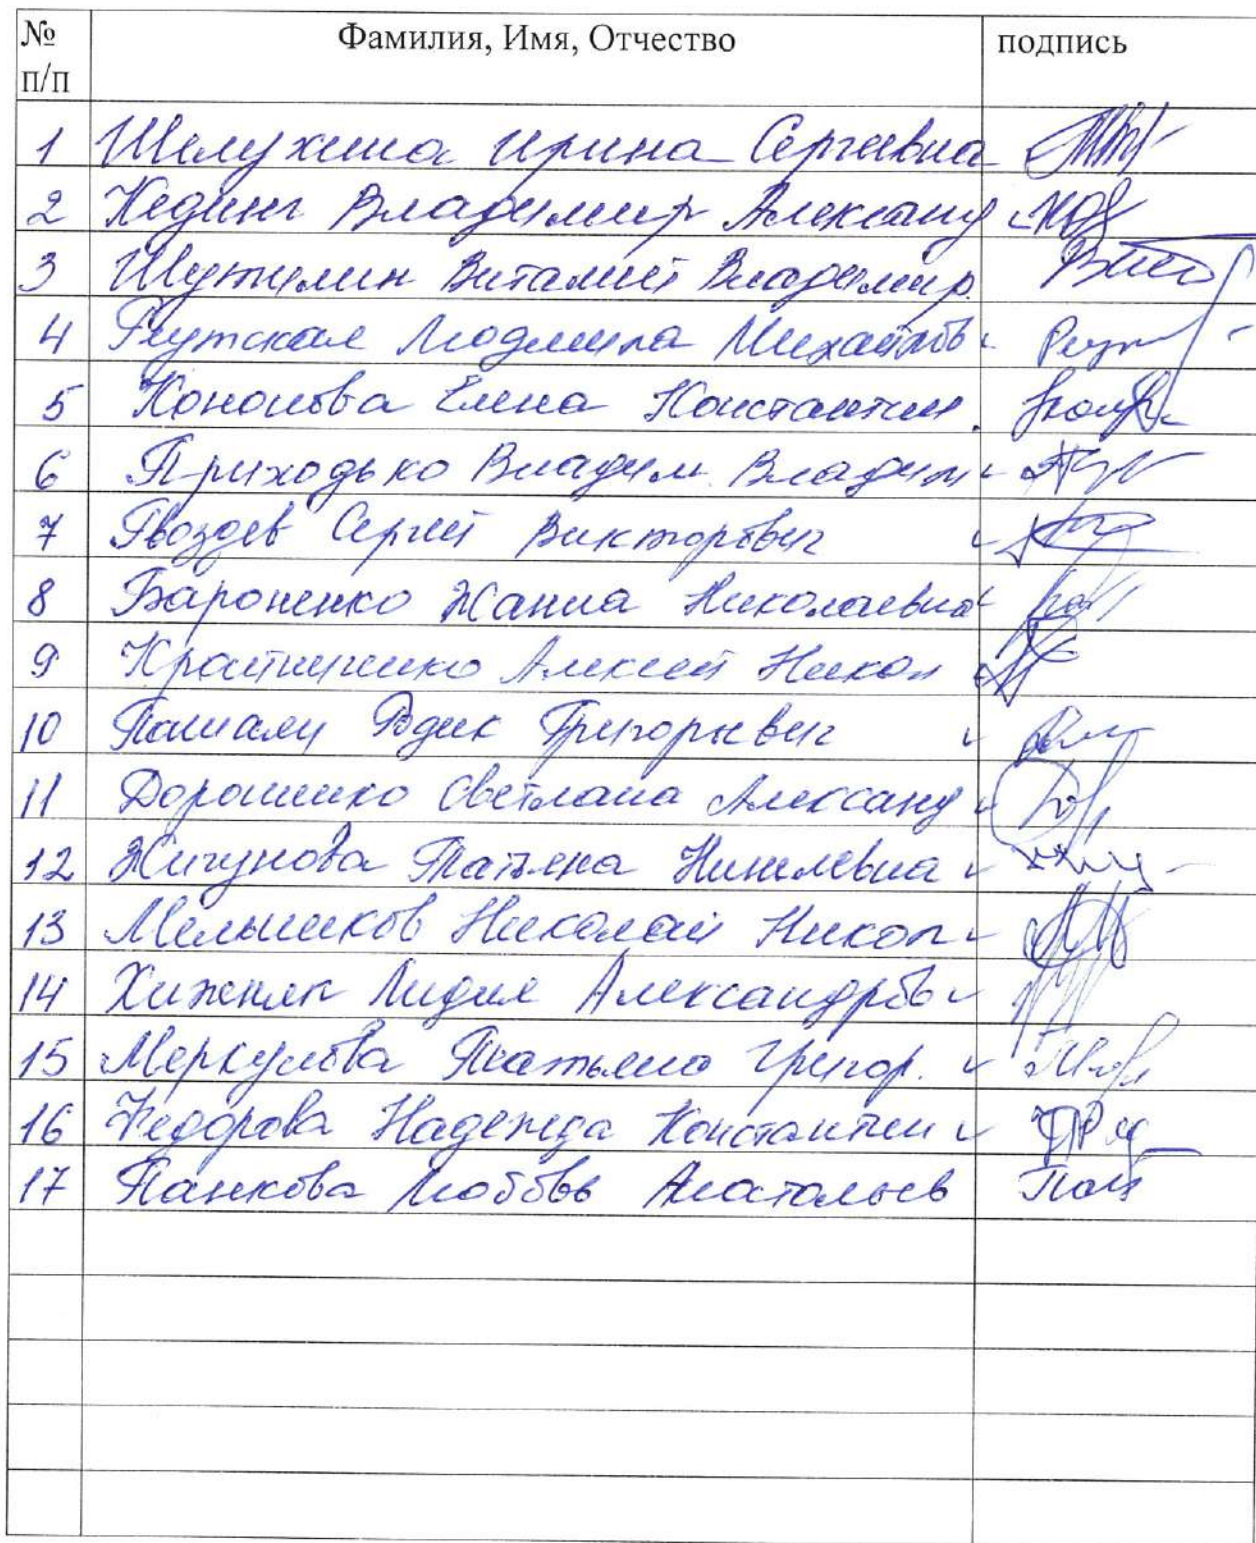 № п/п Фамилия, Имя, Отчество подпись
1 Шелухина Ирина Сергеевна
2 Кединг Владимир Александ
3 Шутилин Виталий Владимир.
4 Реутская Людмила Михайлов
5 Кононова Елена Константин.
6 Приходько Владим. Владим
7 Гвоздев Сергей Викторович
8 Бароненко Жанна Николаевна
9 Алексей Никол
10 Эдик Григорьевич
11 Дорошенко Светлана Александ
12 Жигунова Татьяна
13 Мельников Николай Никол
14 Хижняк Лидия Александров
15 Меркулова Татьяна Григор.
16 Федорова Надежда Константин
17 Панкова Любовь Анатольев